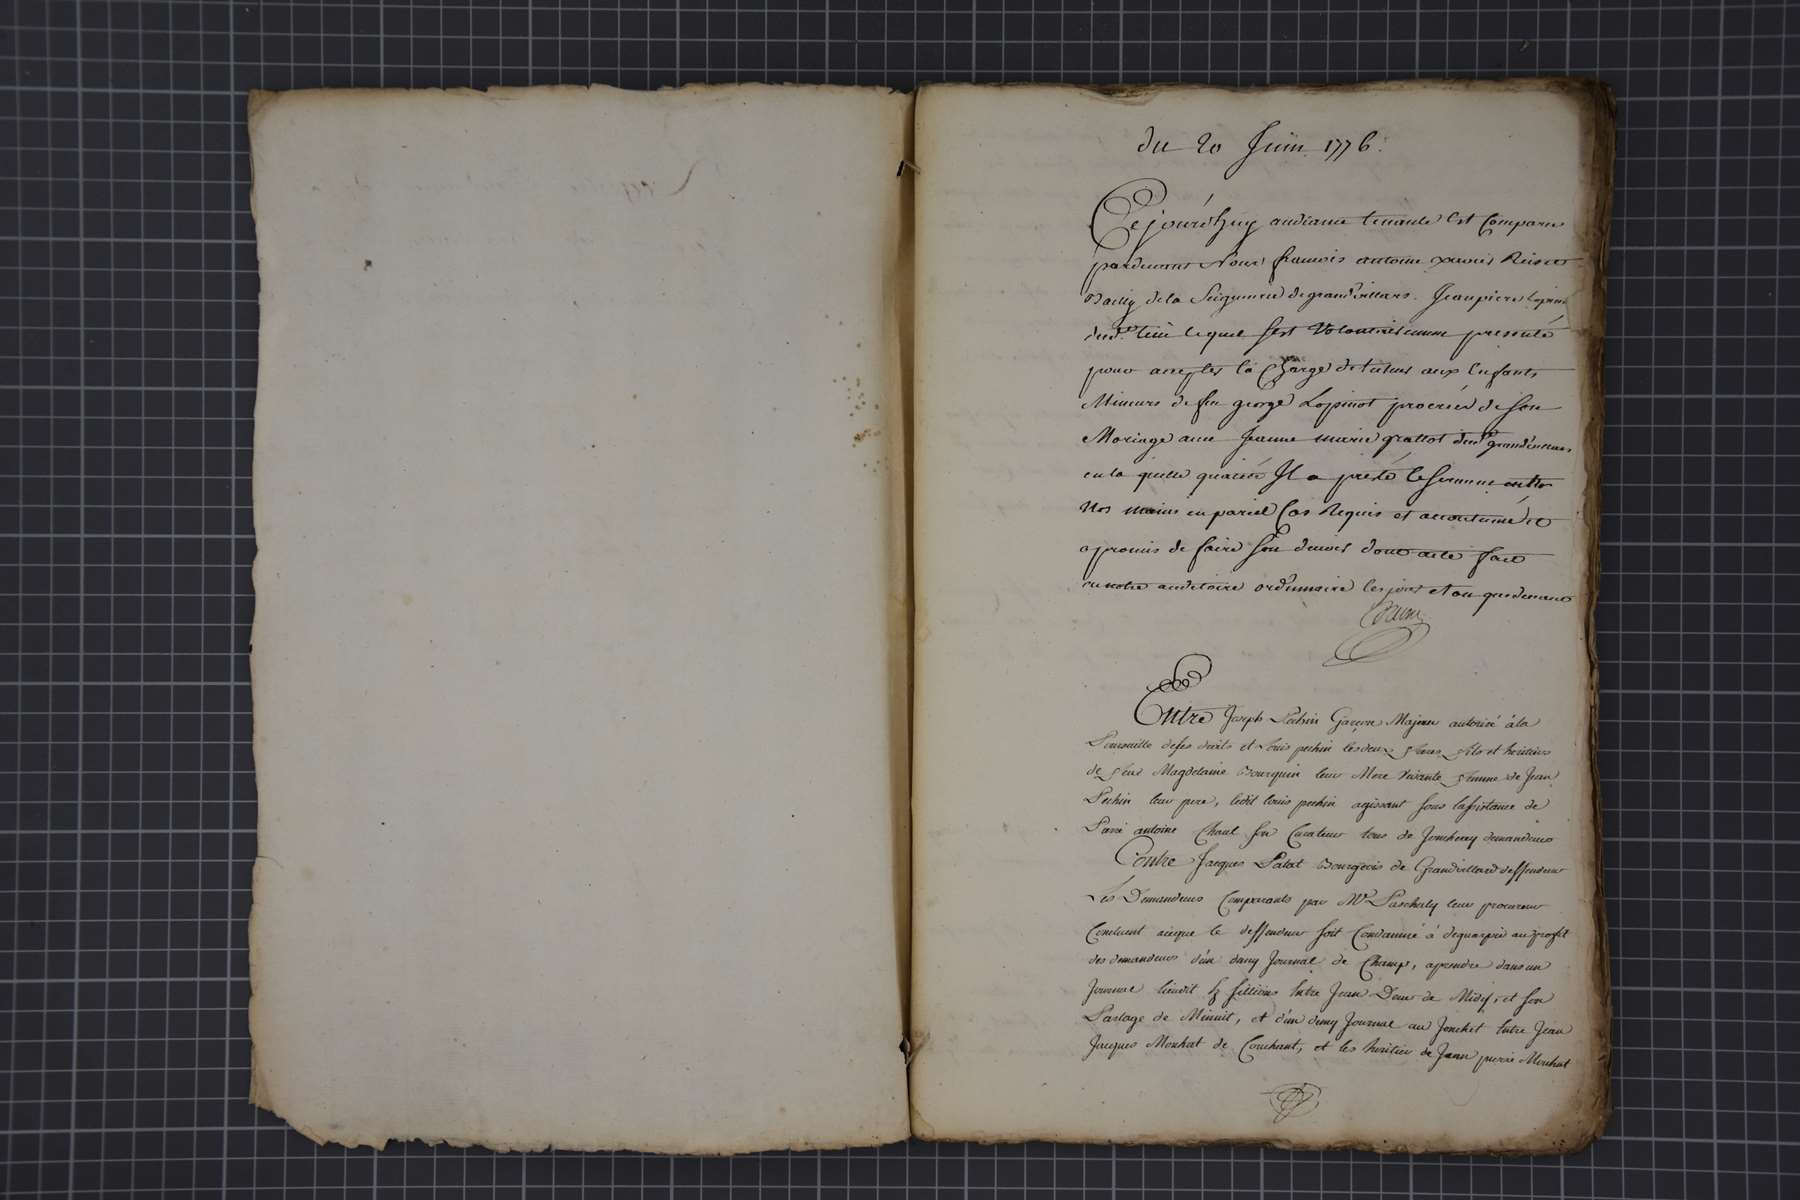 du 20 Juin 1776.
Cejourd'huy audiance tenante Est Comparu
pardevant Nous francois antoine xavier
Bailly de la Seigneurie de grandvillars. Jean piere Lopinot
dud. lieu lequel s'est Volontairement presenté
pour accepter la Charge de tuteur aux Enfants
Mineurs de feu george Lopinot procréés de son
Mariage avec Jeanne marie grattot dud. grandvillars
en la quelle qualité Il a preté le serment entre
Nos mains en pareil Cas Requis et accoutumé et
a promis de faire son devoir dont acte fait
en notre auditoire ordinnaire les jour et an que devant
Entre Joseph Pechin Garcon Majeur autorisé à la
Poursuitte de ses droits et Louis pechin les deux freres fils et heritiers
de feue Magdelaine Bourquin leur Mere Vivante femme de Jean
Pechin leur pere, ledit louis pechin agissant sous l'assistance de
antoine son Curateur tous de Joncherey demandeurs
Contre Jacques Patat Bourgeois de Grandvillard deffendeur
Les Demandeurs Comparants par Me leur procureur
Concluent aceque le deffendeur soit Condamné à deguerpir au profit
des demandeurs d'un demy Journal de Champ, aprendre dans un
Journal lieudit Entre Jean de Midy, et son
Partage de Minuit, et d'un demy Journal au Entre Jean
Jacques Monhat de Couchant, et les heritier de Jean pierre Monhat